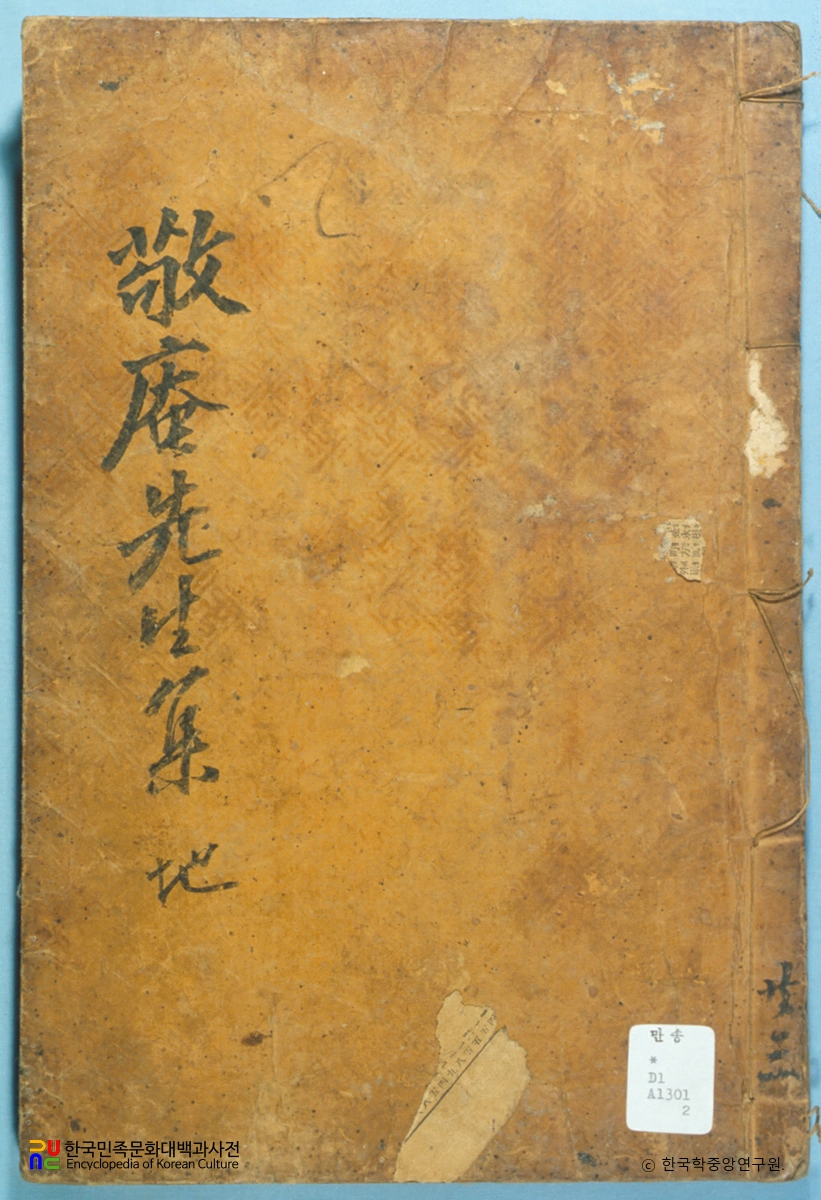 敬庵先生集 地
共三
만송
*
D1
A1301
2
한국민족문화대백과사전
Encyclopedia of Korean Culture
© 한국학중앙연구원.